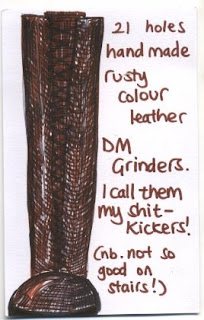 21 holes
hand made
rusty
colour
leather
DM
Grinders.
I call them
my shit-
kickers!
(nb. not so
good on
stairs!)